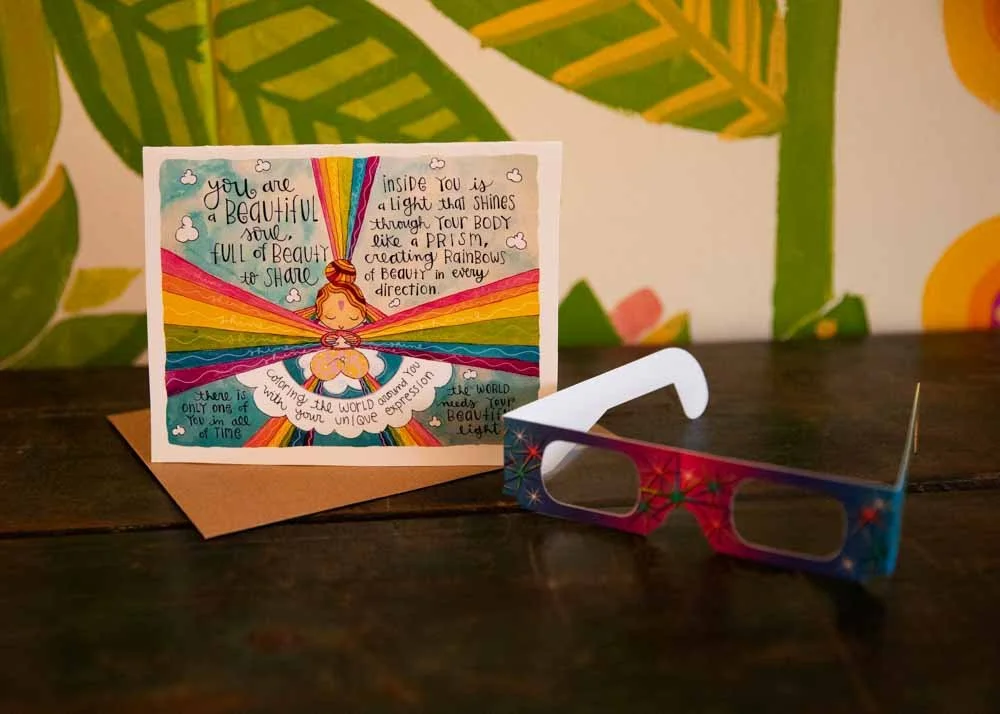 you are
a BEAUTIFUL
soul,
FULL of BEAUTY
to SHARE
INSIDE YOU is
a Light that SHINES
through YOUR BODY
like a PRISM,
creating RAINBOWS
of BEAUTY in every
direction.
shine
shine
shine
shine
COLORING the WORLD around YOU
with your UNIQUE expression
there is
ONLY one of
YOU in all
of TIME
the WORLD
needs YOUR
light